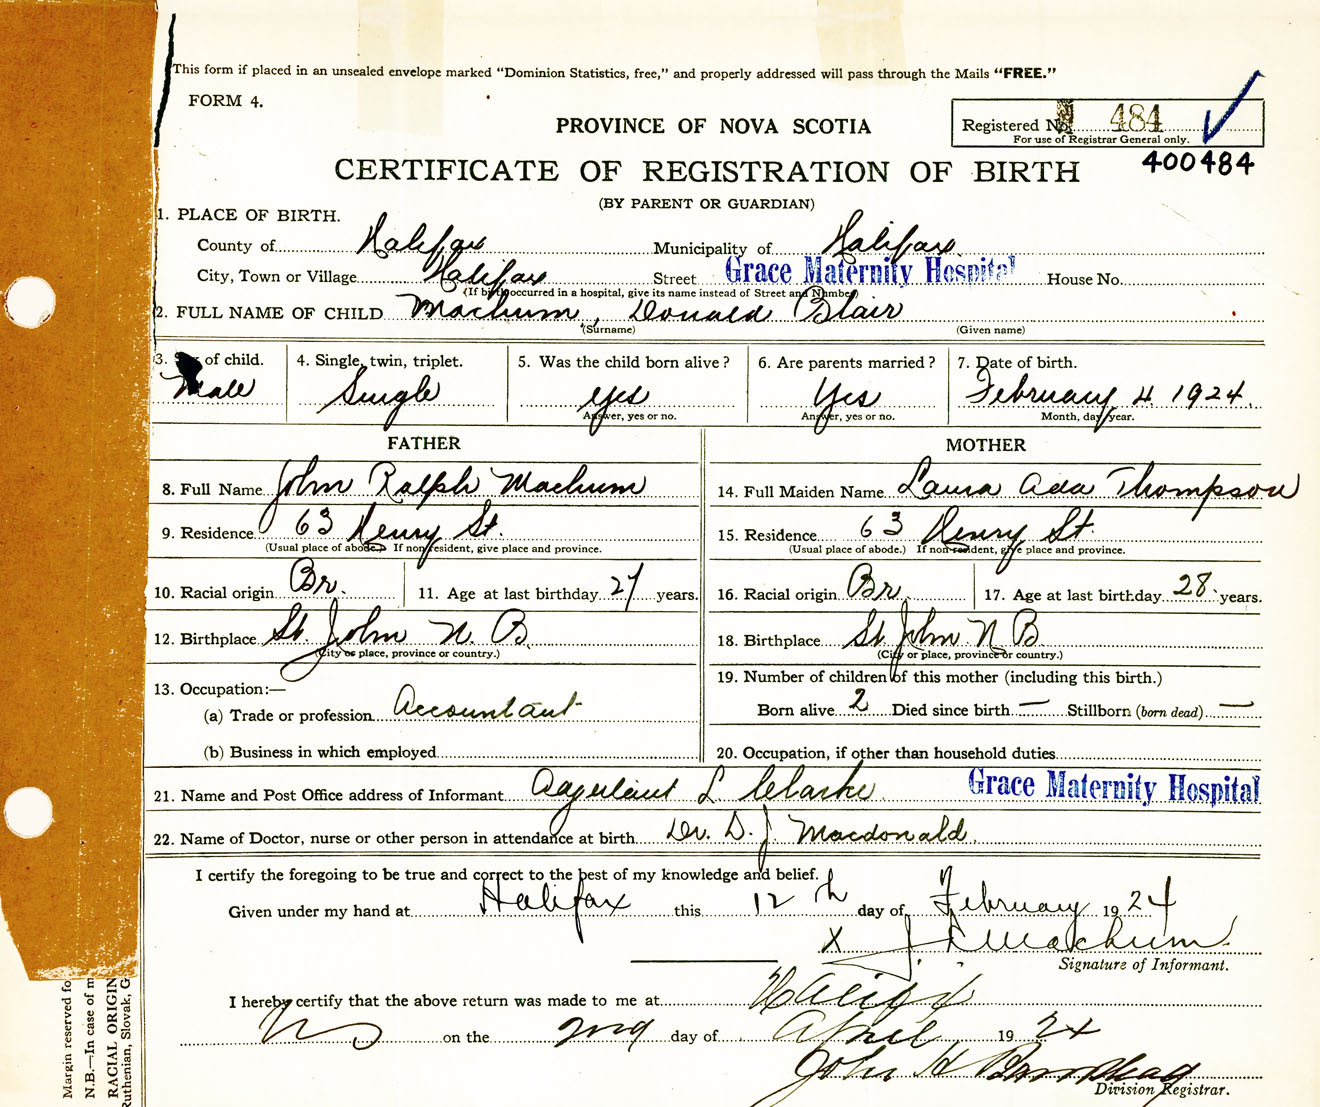 This form if placed in an unsealed envelope marked "Dominion Statistics, free," and properly addressed will pass through the Mails "FREE."
FORM 4.
Registered No. 484
For use of Registrar General only.
PROVINCE OF NOVA SCOTIA
400484
CERTIFICATE OF REGISTRATION OF BIRTH
(BY PARENT OR GUARDIAN)
1. PLACE OF BIRTH.
County of Halifax Municipality of Halifax
City, Town or Village Halifax Street Grace Maternity Hospital House No.
(If birth occurred in a hospital, give its name instead of Street and Number)
2. FULL NAME OF CHILD Machum, Donald Blair
(Surname) (Given name)
3. Sex of child. 4. Single, twin, triplet. 5. Was the child born alive? 6. Are parents married? 7. Date of birth.
Male Single Yes Yes February 4 1924
Answer, yes or no. Answer, yes or no. Month, day, year.
FATHER MOTHER
8. Full Name John Ralph Machum 14. Full Maiden Name Laura Ada Thompson
9. Residence 63 Henry St. 15. Residence 63 Henry St.
(Usual place of abode.) If non-resident, give place and province. (Usual place of abode.) If non-resident, give place and province.
10. Racial origin Br. 11. Age at last birthday 27 years. 16. Racial origin Br. 17. Age at last birthday 28 years.
12. Birthplace St. John N. B. 18. Birthplace St John N B
(City or place, province or country.) (City or place, province or country.)
13. Occupation:— 19. Number of children of this mother (including this birth.)
(a) Trade or profession Accountant Born alive 2 Died since birth — Stillborn (born dead) —
(b) Business in which employed 20. Occupation, if other than household duties
21. Name and Post Office address of Informant L Clarke Grace Maternity Hospital
22. Name of Doctor, nurse or other person in attendance at birth Dr. D. J. Macdonald.
I certify the foregoing to be true and correct to the best of my knowledge and belief.
Given under my hand at Halifax this 12th day of February 1924
X J. R. Machum
Signature of Informant.
I hereby certify that the above return was made to me at Halifax
NS on the 2nd day of April 1924
John H
Division Registrar.
Margin reserved fo
N.B.—In case of m
RACIAL ORIGIN
Ruthenian, Slovak, G